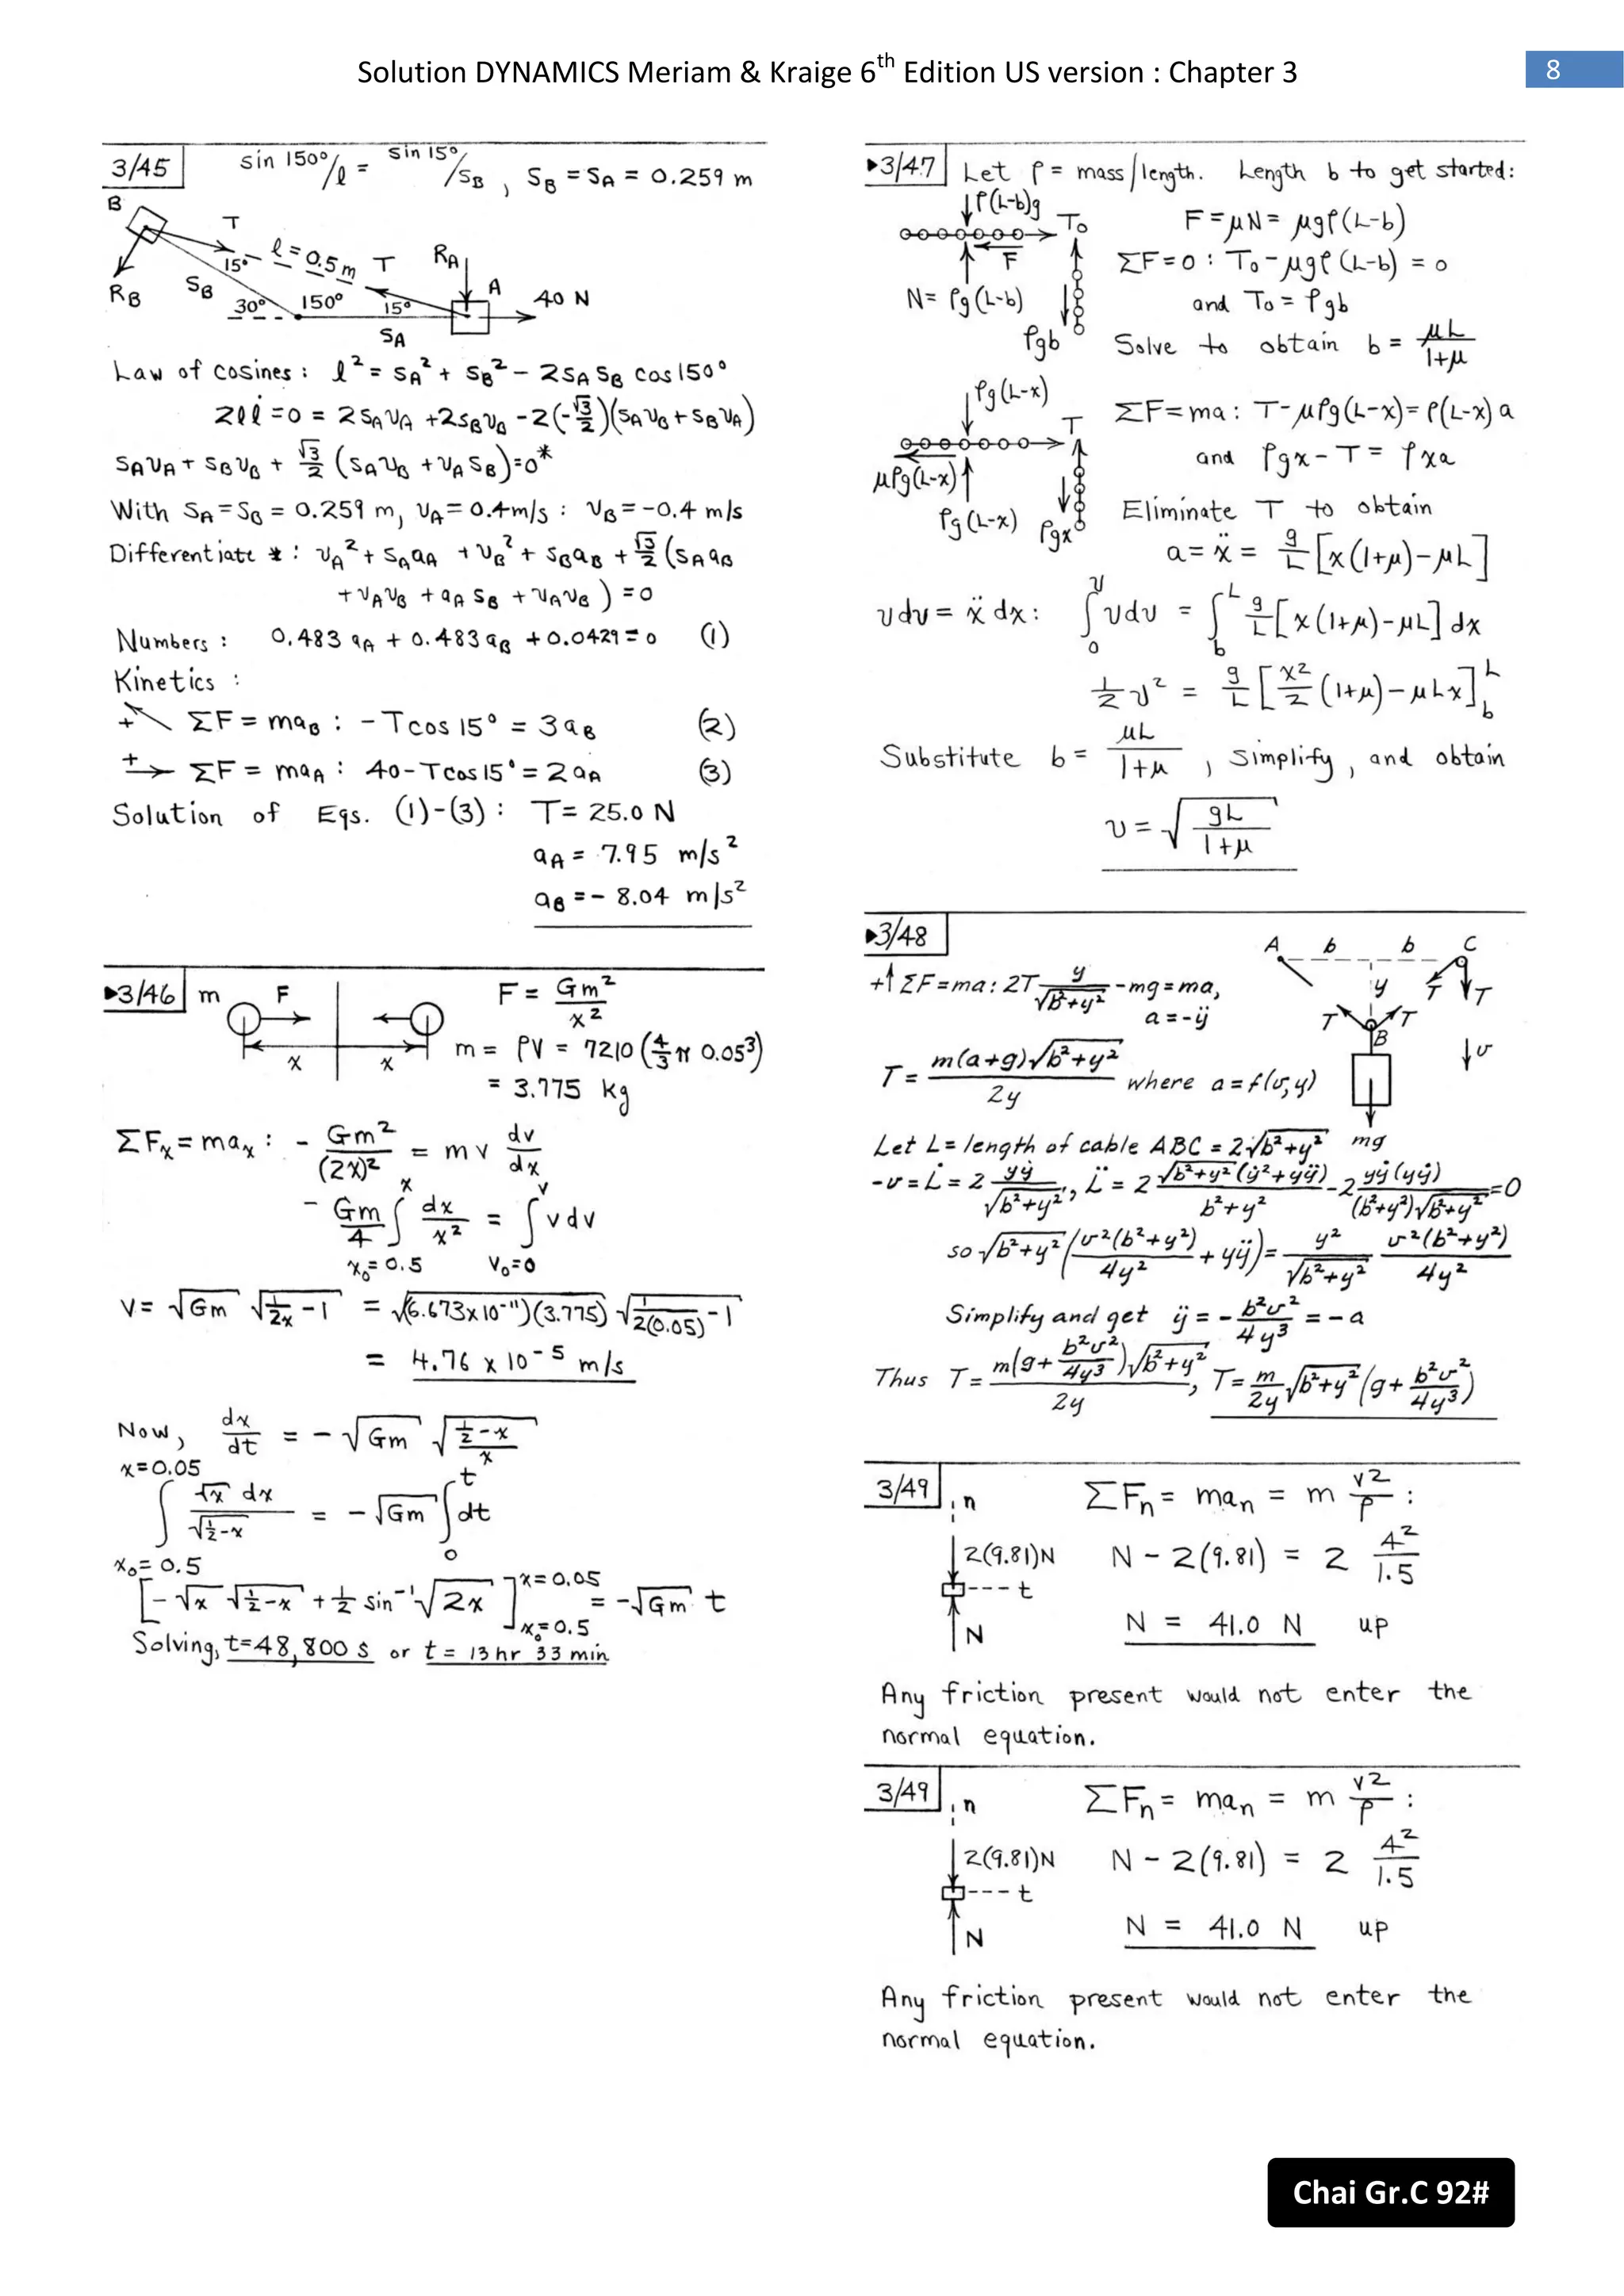 Solution DYNAMICS Meriam & Kraige 6th Edition US version : Chapter 3
8
3/45
sin 150°/l = sin 15°/S_B , S_B = S_A = 0.259 m
B
T
l = 0.5 m
15°
T
R_A
A
40 N
R_B
S_B
30°
150°
15°
S_A
Law of cosines : l² = S_A² + S_B² - 2S_A S_B cos 150°
2l l̇ = 0 = 2 S_A v_A + 2S_B v_B - 2(-√3/2)(S_A v_B + S_B v_A)
S_A v_A + S_B v_B + √3/2 (S_A v_B + v_A S_B) = 0*
With S_A = S_B = 0.259 m, v_A = 0.4 m/s : v_B = -0.4 m/s
Differentiate * : v_A² + S_A a_A + v_B² + S_B a_B + √3/2 (S_A a_B
+ v_A v_B + a_A S_B + v_A v_B ) = 0
Numbers : 0.483 a_A + 0.483 a_B + 0.0429 = 0 (1)
Kinetics :
+ ΣF = ma_B : - T cos 15° = 3 a_B (2)
+→ ΣF = ma_A : 40 - T cos 15° = 2 a_A (3)
Solution of Eqs. (1)-(3) : T = 25.0 N
a_A = 7.95 m/s²
a_B = - 8.04 m/s²
▸3/46
m
F
x
x
F = Gm²/x²
m = ρV = 7210 (4/3 π 0.05³)
= 3.775 kg
ΣF_x = ma_x : - Gm²/(2x)² = m v dv/dx
- Gm/4 ∫_{x₀=0.5}^{x} dx/x² = ∫_{v₀=0}^{v} v dv
v = √Gm √(1/2x - 1) = √(6.673x10⁻¹¹)(3.775) √(1/2(0.05) - 1)
= 4.76 x 10⁻⁵ m/s
Now, dx/dt = - √Gm √((1/2 - x)/x)
∫_{x₀=0.5}^{x=0.05} √x dx/√(1/2-x) = - √Gm ∫_0^t dt
[-√x √(1/2-x) + 1/2 sin⁻¹√2x ]_{x₀=0.5}^{x=0.05} = -√Gm t
Solving, t=48,800 s or t = 13 hr 33 min
▸3/47
Let ρ = mass/length. Length b to get started:
ρ(L-b)g
T₀
F
N = ρg(L-b)
ρgb
F = μN = μgρ(L-b)
ΣF=0 : T₀ - μgρ(L-b) = 0
and T₀ = ρgb
Solve to obtain b = μL/1+μ
ρg(L-x)
T
μρg(L-x)
ρg(L-x)
ρgx
ΣF=ma : T-μρg(L-x) = ρ(L-x) a
and ρgx - T = ρxa
Eliminate T to obtain
a = ẍ = g/L [x(1+μ)-μL]
v dv = ẍ dx : ∫_0^v v dv = ∫_b^L g/L [x(1+μ)-μL] dx
1/2 v² = g/L [x²/2 (1+μ) - μLx]_b^L
Substitute b = μL/1+μ , simplify, and obtain
v = √(gL/1+μ)
▸3/48
A
b
b
C
y
T
T
T
T
B
v
mg
+↑ΣF=ma : 2T y/√(b²+y²) - mg = ma,
a = -ÿ
T = m(a+g)√(b²+y²)/2y where a = f(v,y)
Let L = length of cable ABC = 2√(b²+y²)
-v = L̇ = 2 yẏ/√(b²+y²), L̈ = 2 √(b²+y²)(ẏ²+yÿ)/b²+y² - 2 yẏ(yẏ)/(b²+y²)√(b²+y²) = 0
so √(b²+y²) (v²(b²+y²)/4y² + yÿ) = y²/√(b²+y²) v²(b²+y²)/4y²
Simplify and get ÿ = - b²v²/4y³ = - a
Thus T = m(g + b²v²/4y³)√(b²+y²)/2y, T = m/2y √(b²+y²) (g + b²v²/4y³)
3/49
n
2(9.81)N
t
N
ΣF_n = ma_n = m v²/ρ :
N - 2(9.81) = 2 4²/1.5
N = 41.0 N up
Any friction present would not enter the
normal equation.
3/49
n
2(9.81)N
t
N
ΣF_n = ma_n = m v²/ρ :
N - 2(9.81) = 2 4²/1.5
N = 41.0 N up
Any friction present would not enter the
normal equation.
Chai Gr.C 92#